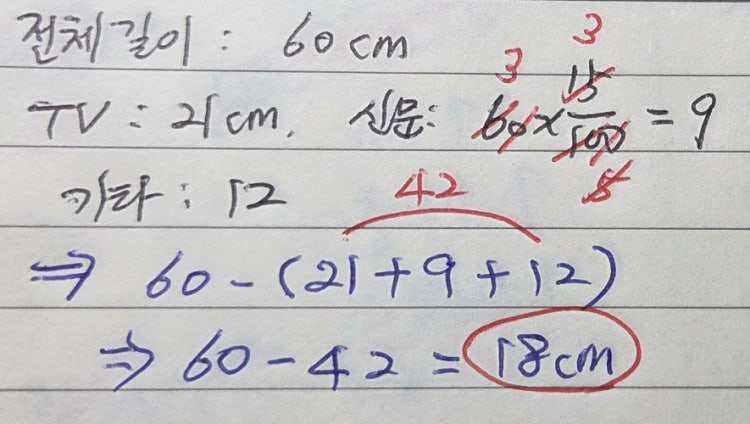 전체길이 : 60cm
TV : 21cm, 신문: 60×15/100 = 9
3 3 5
기타 : 12
42
⇒ 60-(21+9+12)
⇒ 60-42 = 18cm